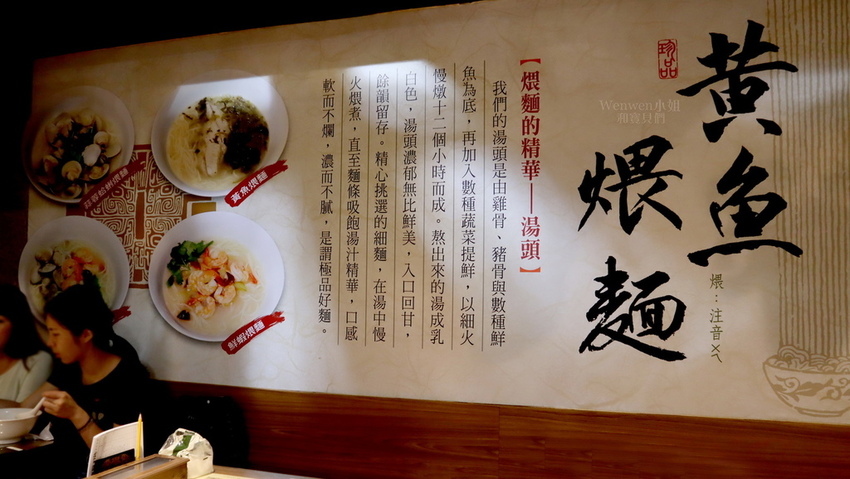 黃魚
煨麵
煨：注音ㄨㄟ
珍品
Wenwen小姐
和寶貝們
【煨麵的精華──湯頭】
我們的湯頭是由雞骨、豬骨與數種鮮
魚為底，再加入數種蔬菜提鮮，以細火
慢燉十二個小時而成。熬出來的湯成乳
白色，湯頭濃郁無比鮮美，入口回甘，
餘韻留存。精心挑選的細麵，在湯中慢
火煨煮，直至麵條吸飽湯汁精華，口感
軟而不爛，濃而不膩，是謂極品好麵。
黃魚煨麵
鮮蝦煨麵